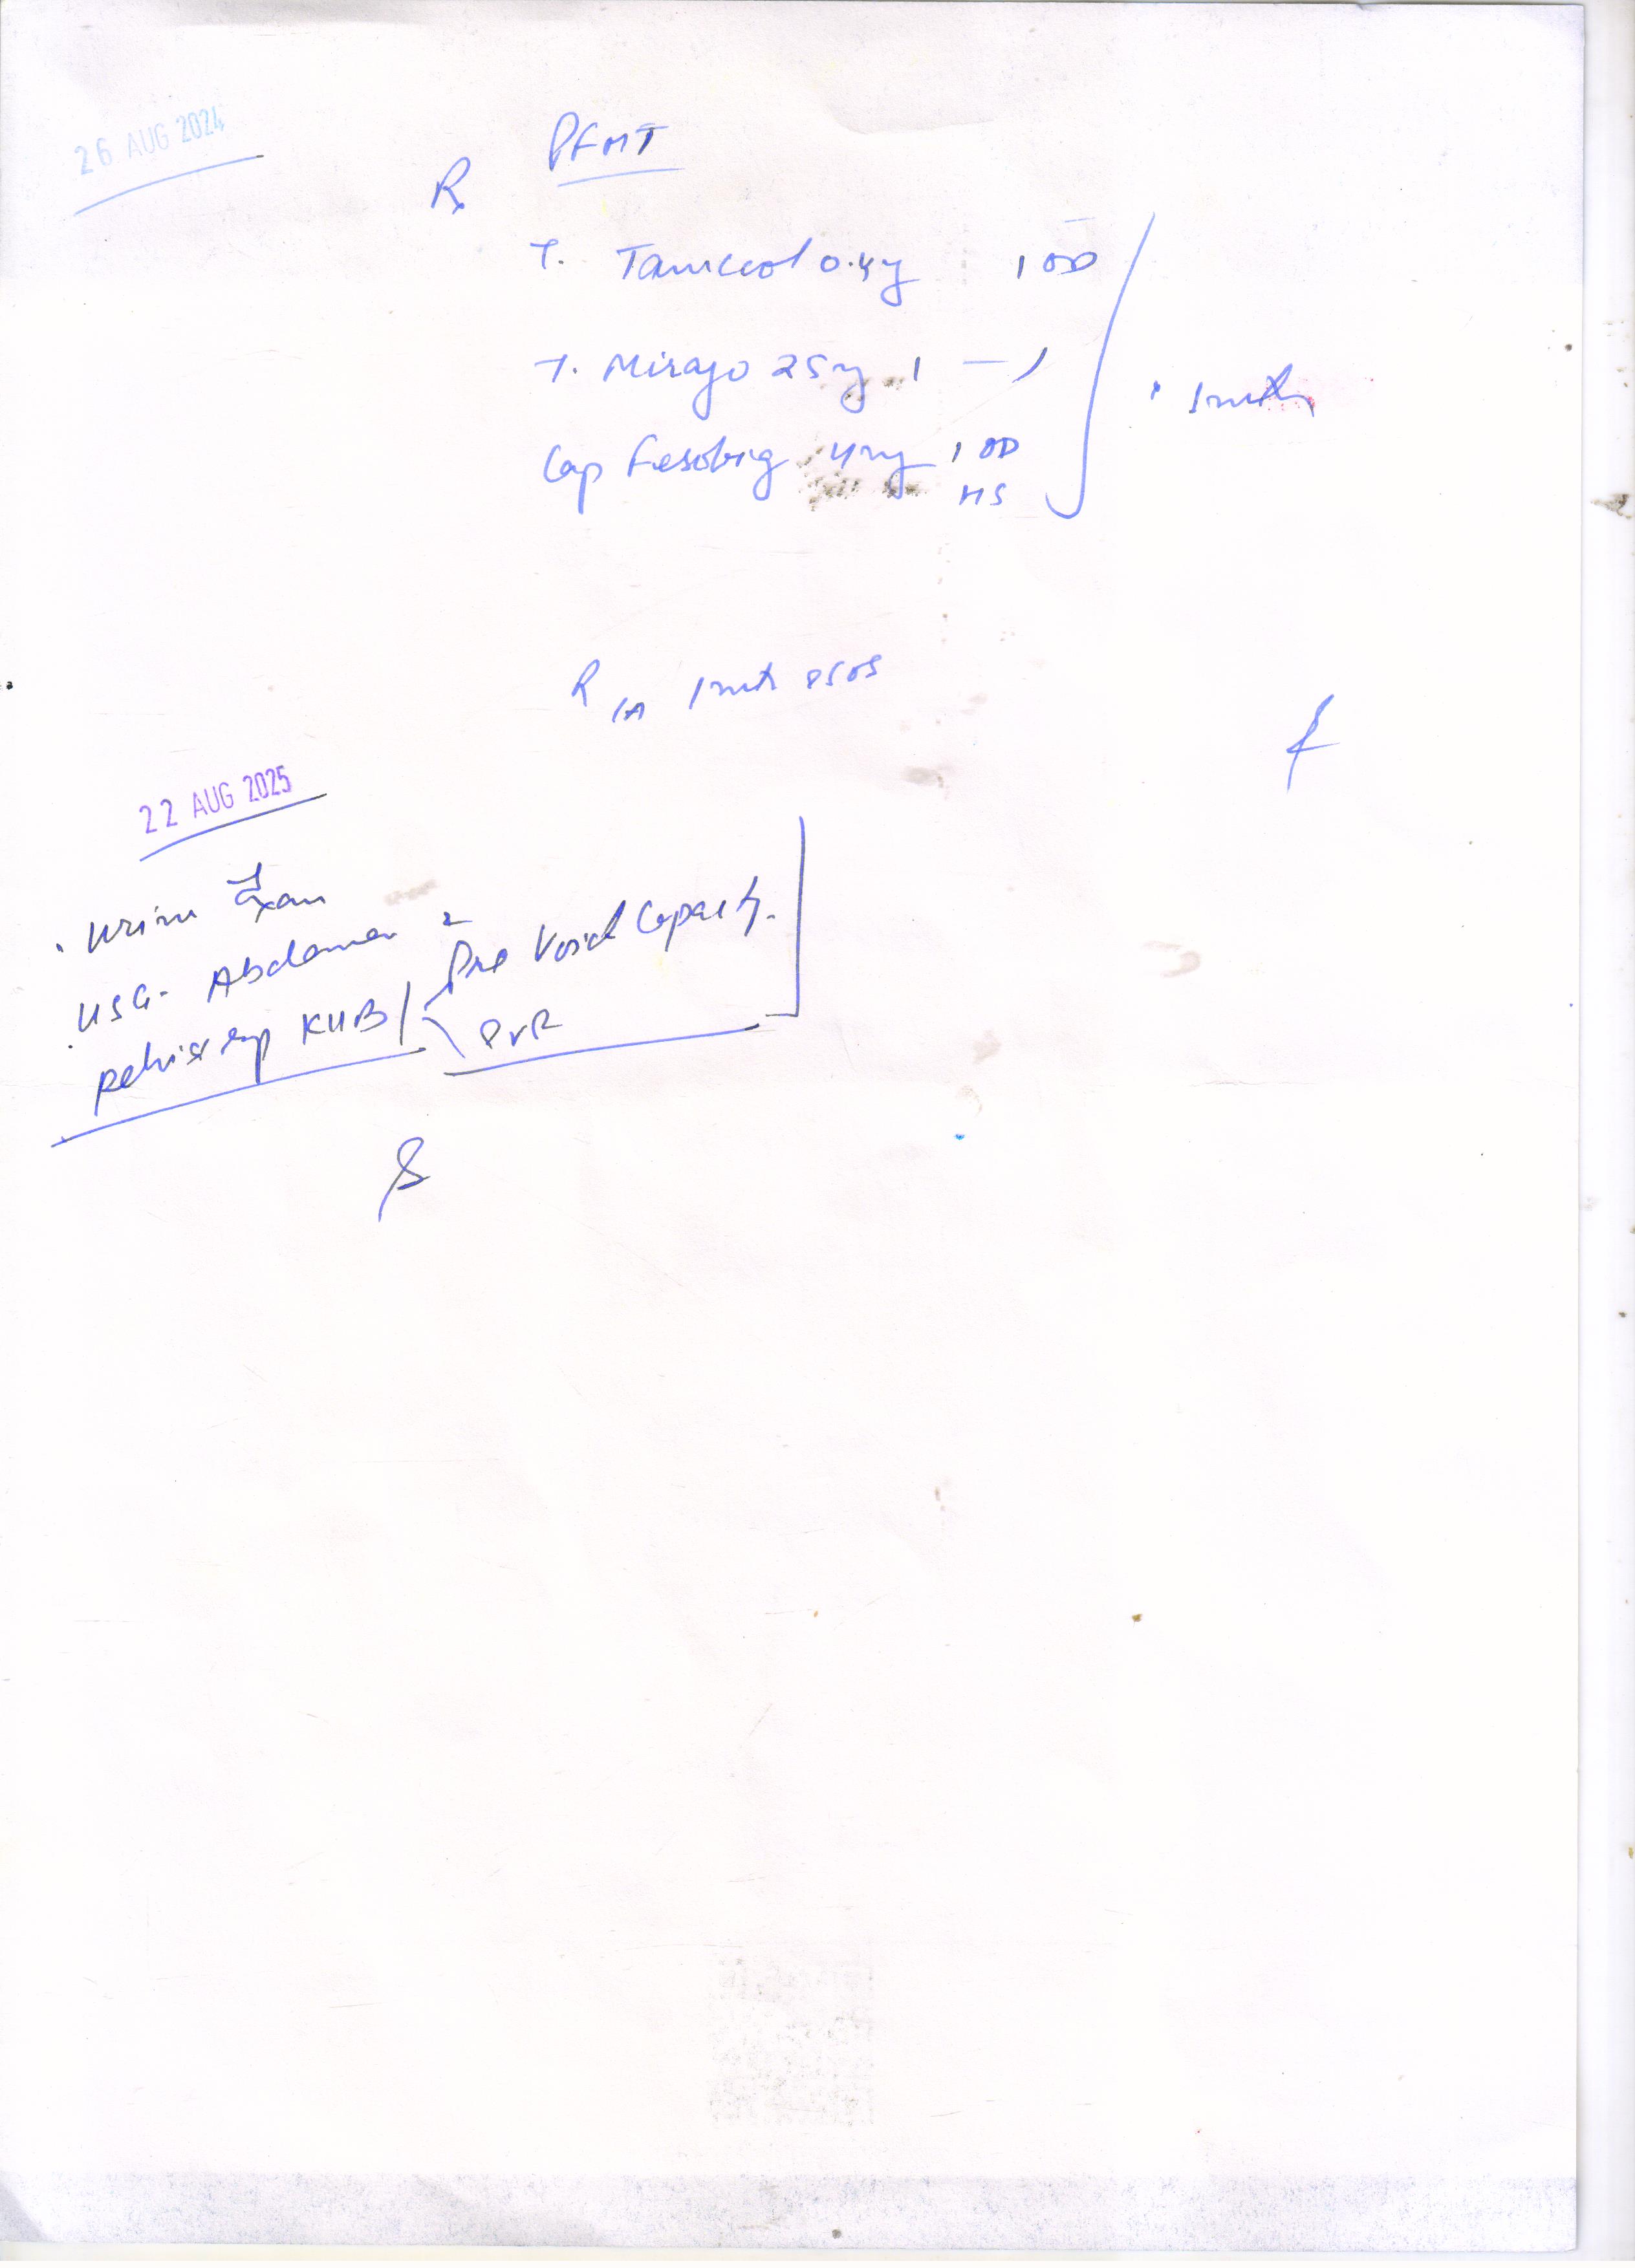 26 AUG 2024
PFMT
Rx
T. 0.4mg 1 OD
T. Mirago 25mg 1 — 1
Cap Fesobig 4mg 1 OD
HS
1 month
R 1 month
22 AUG 2025
. Urine Exam
. USG- Abdomen
KUB
Pre Void Capacity.
PVR